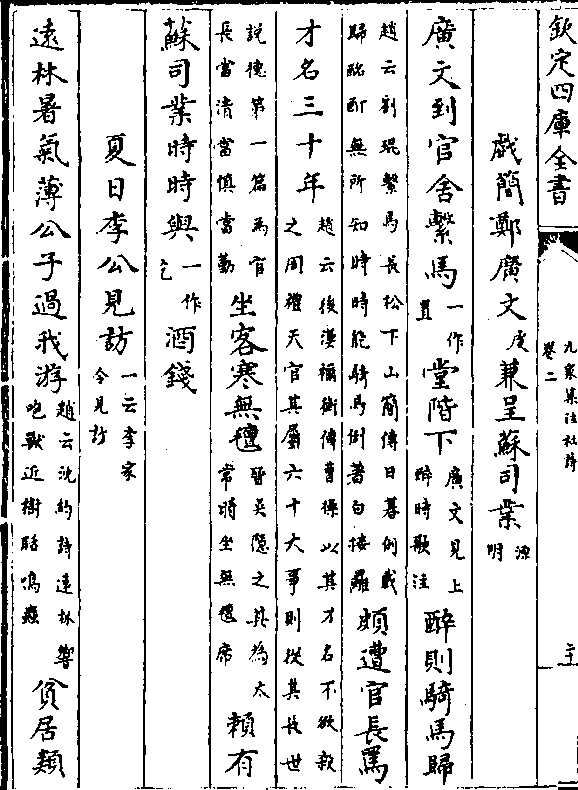 欽定四庫全書
九家集注杜詩
卷二
二十
戲簡鄭廣文虔兼呈蘇司業源明
廣文到官舍繫馬一作置堂階下廣文見上醉時歌注醉則騎馬歸
趙云劉琨繫馬長松下山簡傳日暮倒載歸酩酊無所知時時能騎馬倒著白接䍦頗遭官長罵
才名三十年趙云後漢禰衡傳曹操以其才名不欲殺之周禮天官其屬六十大事則從其長世
說德第一篇為官長當清當慎當勤坐客寒無氊晉吳隱之其為太常時坐無氊席賴有
蘇司業時時與一作乞酒錢
夏日李公見訪一云李家令見訪
遠林暑氣薄公子過我游趙云沈約詩遠林響咆獸近樹聒鳴蟲貧居類